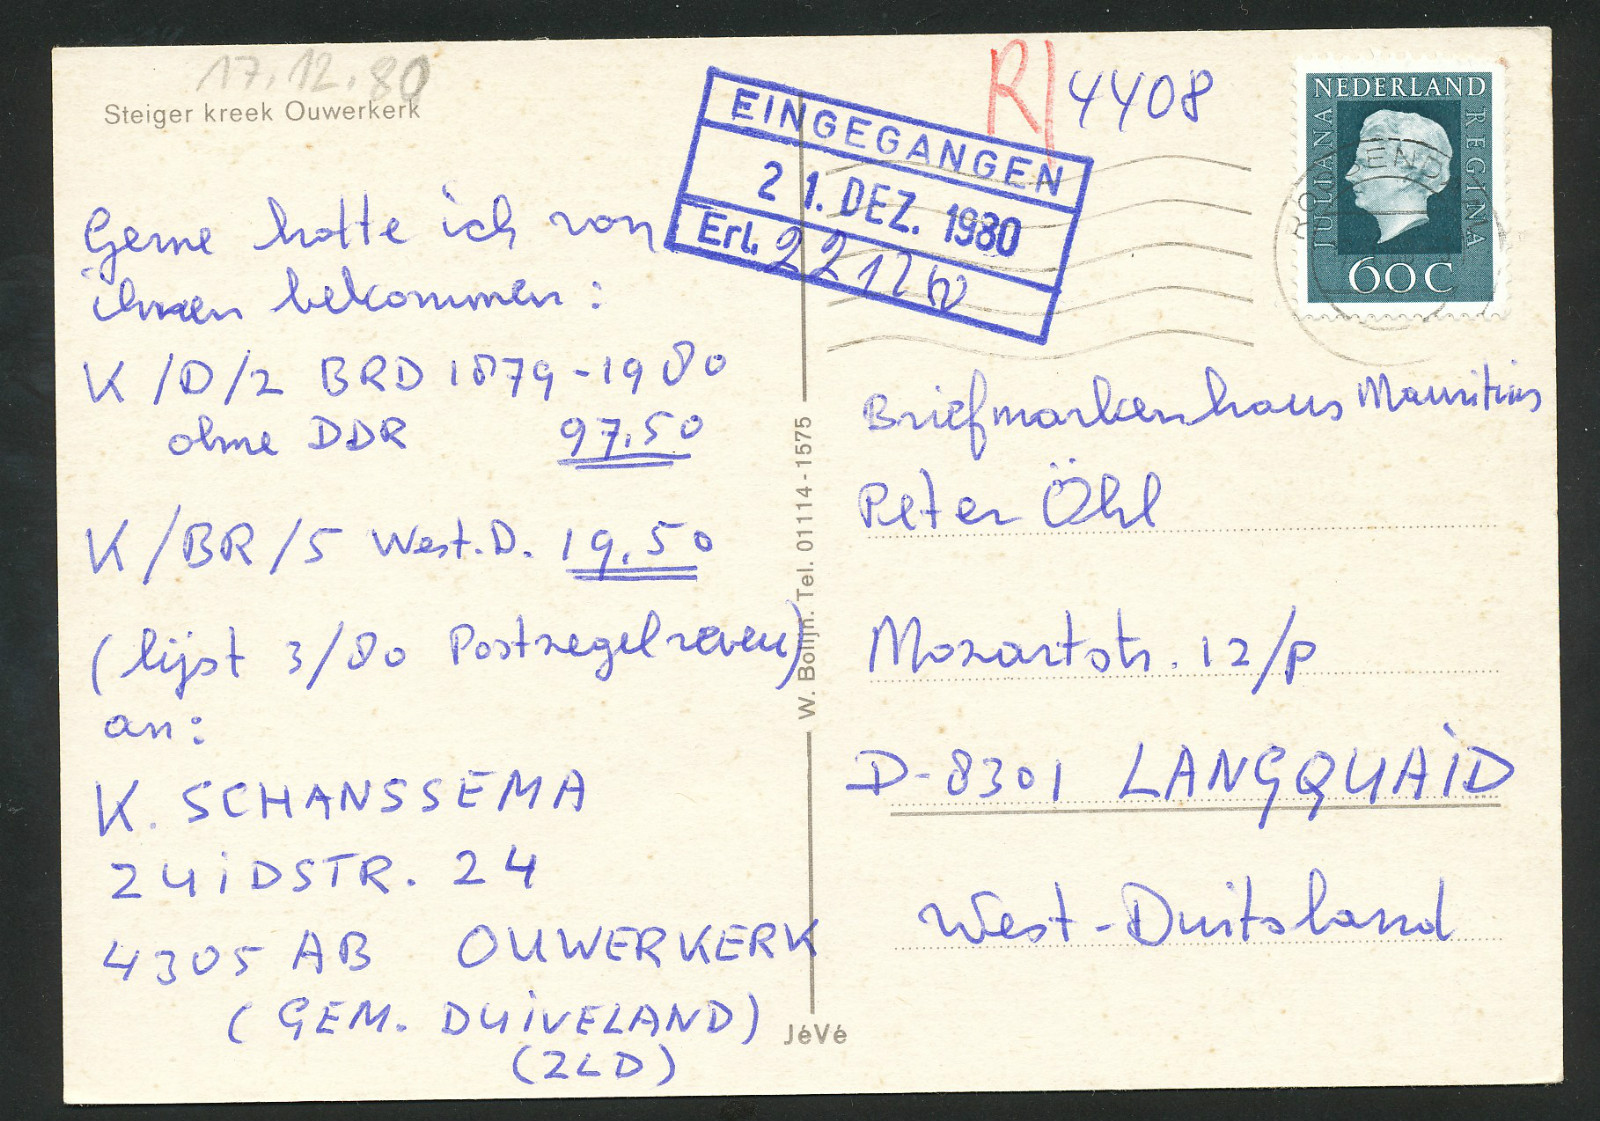 17.12.80
Steiger kreek Ouwerkerk
Gerne hatte ich von
ihnen bekommen:
K/D/2 BRD 1879-1980
ohne DDR 97,50
K/BR/5 West.D. 19,50
(lijst 3/80 Postzegelreven)
an:
K. SCHANSSEMA
ZUIDSTR. 24
4305 AB OUWERKERK
(GEM. DUIVELAND)
(ZLD)
W. Bolijn. Tel. 01114-1575
JéVé
EINGEGANGEN
21. DEZ. 1980
Erl. 2212
R/4408
NEDERLAND
JULIANA REGINA
60C
Briefmarkenhaus Mauritius
Peter Öhl
Mozartstr. 12/p
D-8301 LANGQUAID
West-Duitsland